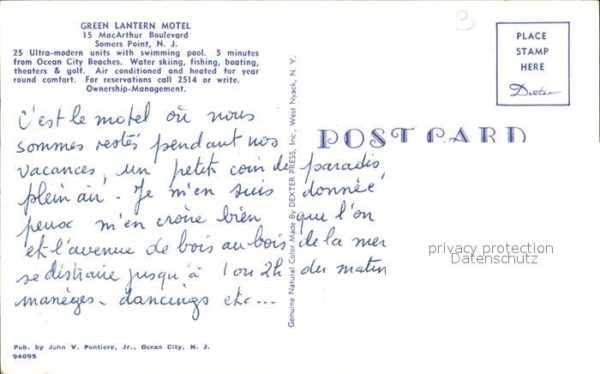 GREEN LANTERN MOTEL
15 MacArthur Boulevard
Somers Point, N. J.
25 Ultra-modern units with swimming pool. 5 minutes
from Ocean City Beaches. Water skiing, fishing, boating,
theaters & golf. Air conditioned and heated for year
round comfort. For reservations call 2514 or write.
Ownership-Management.
3
PLACE
STAMP
HERE
Dexter
POST CARD
Genuine Natural Color Made By DEXTER PRESS, Inc., West Nyack, N. Y.
C'est le motel où nous
sommes restés pendant nos
vacances, un petit coin de paradis
plein air. Je m'en suis donnée,
peux m'en croire bien que l'on
et l'avenue de bois au bois de la mer
se distraire jusqu'à 1 ou 2h du matin
manèges. dancings etc...
privacy protection
Datenschutz
Pub. by John V. Pontiere, Jr., Ocean City, N. J.
94095